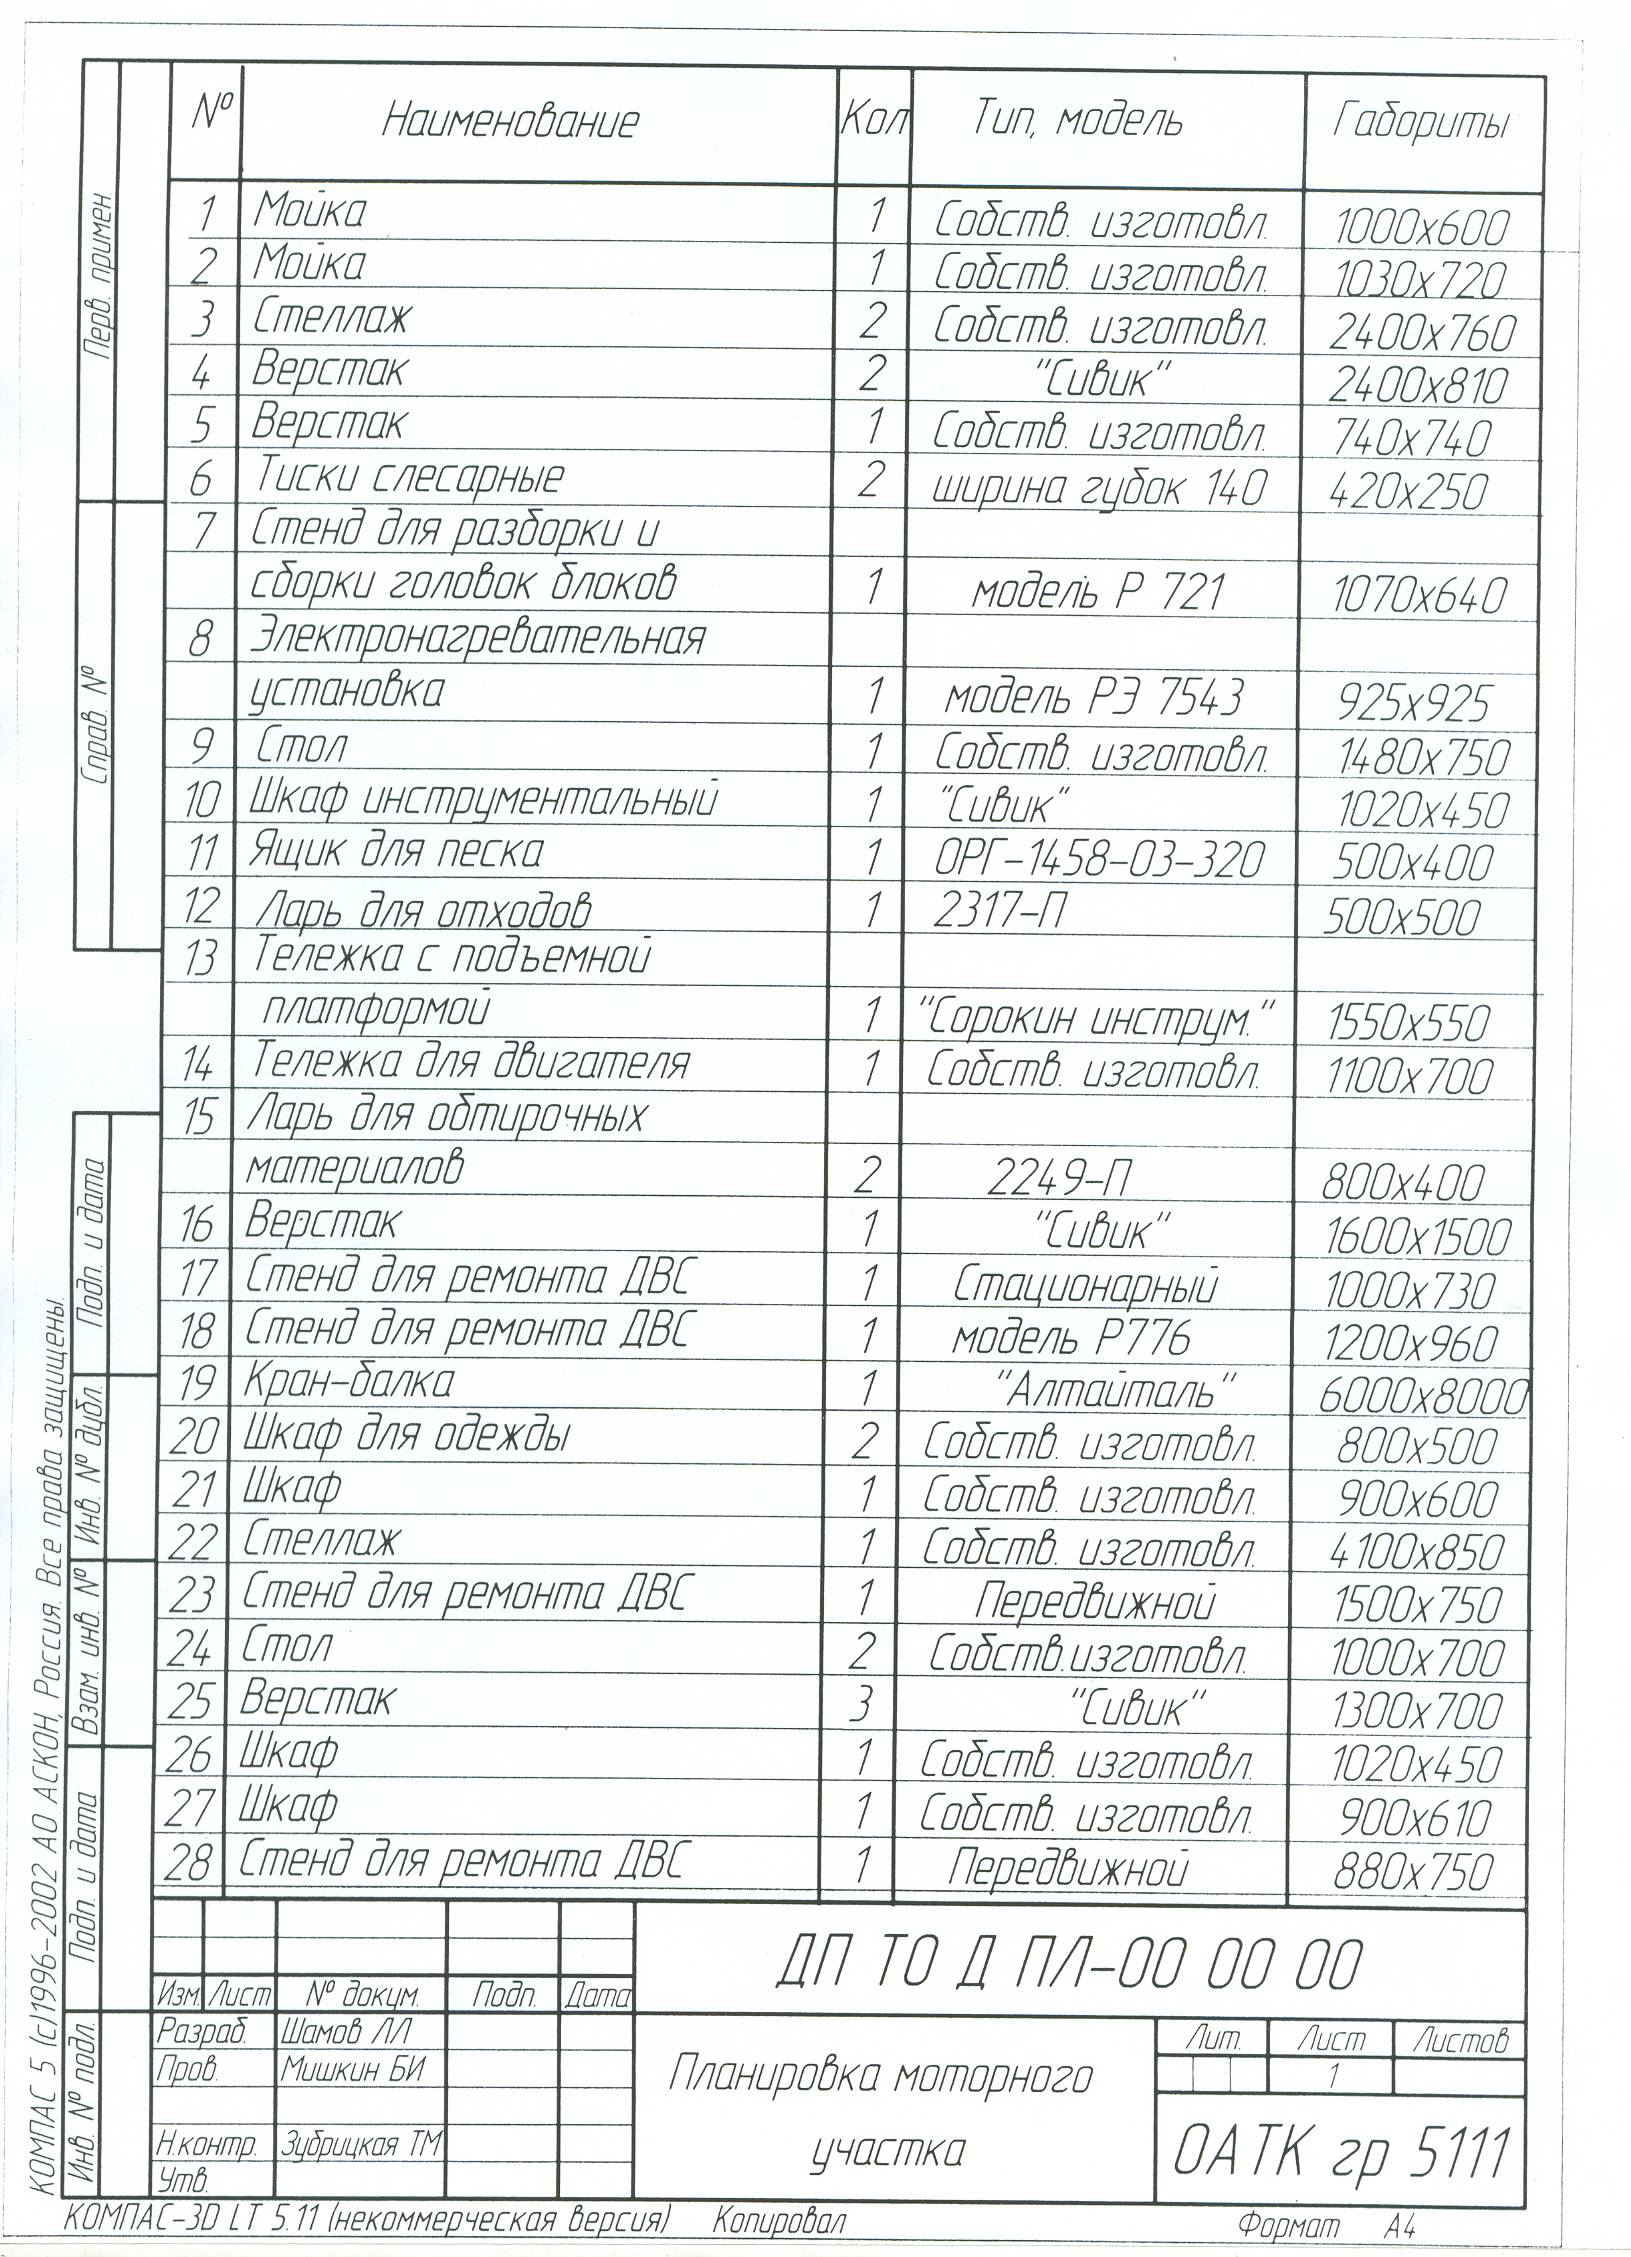 № Наименование Кол Тип, модель Габориты
1 Мойка 1 Собств. изготовл. 1000х600
2 Мойка 1 Собств. изготовл. 1030х720
3 Стеллаж 2 Собств. изготовл. 2400х760
4 Верстак 2 "Сивик" 2400х810
5 Верстак 1 Собств. изготовл. 740х740
6 Тиски слесарные 2 ширина губок 140 420х250
7 Стенд для разборки и
сборки головок блоков 1 модель Р 721 1070х640
8 Электронагревательная
установка 1 модель РЭ 7543 925х925
9 Стол 1 Собств. изготовл. 1480х750
10 Шкаф инструментальный 1 "Сивик" 1020х450
11 Ящик для песка 1 ОРГ-1458-03-320 500х400
12 Ларь для отходов 1 2317-П 500х500
13 Тележка с подъемной
платформой 1 "Сорокин инструм." 1550х550
14 Тележка для двигателя 1 Собств. изготовл. 1100х700
15 Ларь для обтирочных
материалов 2 2249-П 800х400
16 Верстак 1 "Сивик" 1600х1500
17 Стенд для ремонта ДВС 1 Стационарный 1000х730
18 Стенд для ремонта ДВС 1 модель Р776 1200х960
19 Кран-балка 1 "Алтайталь" 6000х8000
20 Шкаф для одежды 2 Собств. изготовл. 800х500
21 Шкаф 1 Собств. изготовл. 900х600
22 Стеллаж 1 Собств. изготовл. 4100х850
23 Стенд для ремонта ДВС 1 Передвижной 1500х750
24 Стол 2 Собств.изготовл. 1000х700
25 Верстак 3 "Сивик" 1300х700
26 Шкаф 1 Собств. изготовл. 1020х450
27 Шкаф 1 Собств. изготовл. 900х610
28 Стенд для ремонта ДВС 1 Передвижной 880х750
Перв. примен.
Справ. №
Подп. и дата
Инв. № дубл.
Взам. инв. №
Подп. и дата
Инв. № подл.
КОМПАС 5 (с)1996-2002 АО АСКОН, Россия. Все права защищены.
ДП ТО Д ПЛ-00 00 00
Изм. Лист № докум. Подп. Дата
Разраб. Шамов ЛЛ
Пров. Мишкин БИ
Н.контр. Зубрицкая ТМ
Утв.
Планировка моторного
участка
Лит. Лист Листов
1
ОАТК гр 5111
КОМПАС-3D LT 5.11 (некоммерческая версия) Копировал Формат А4